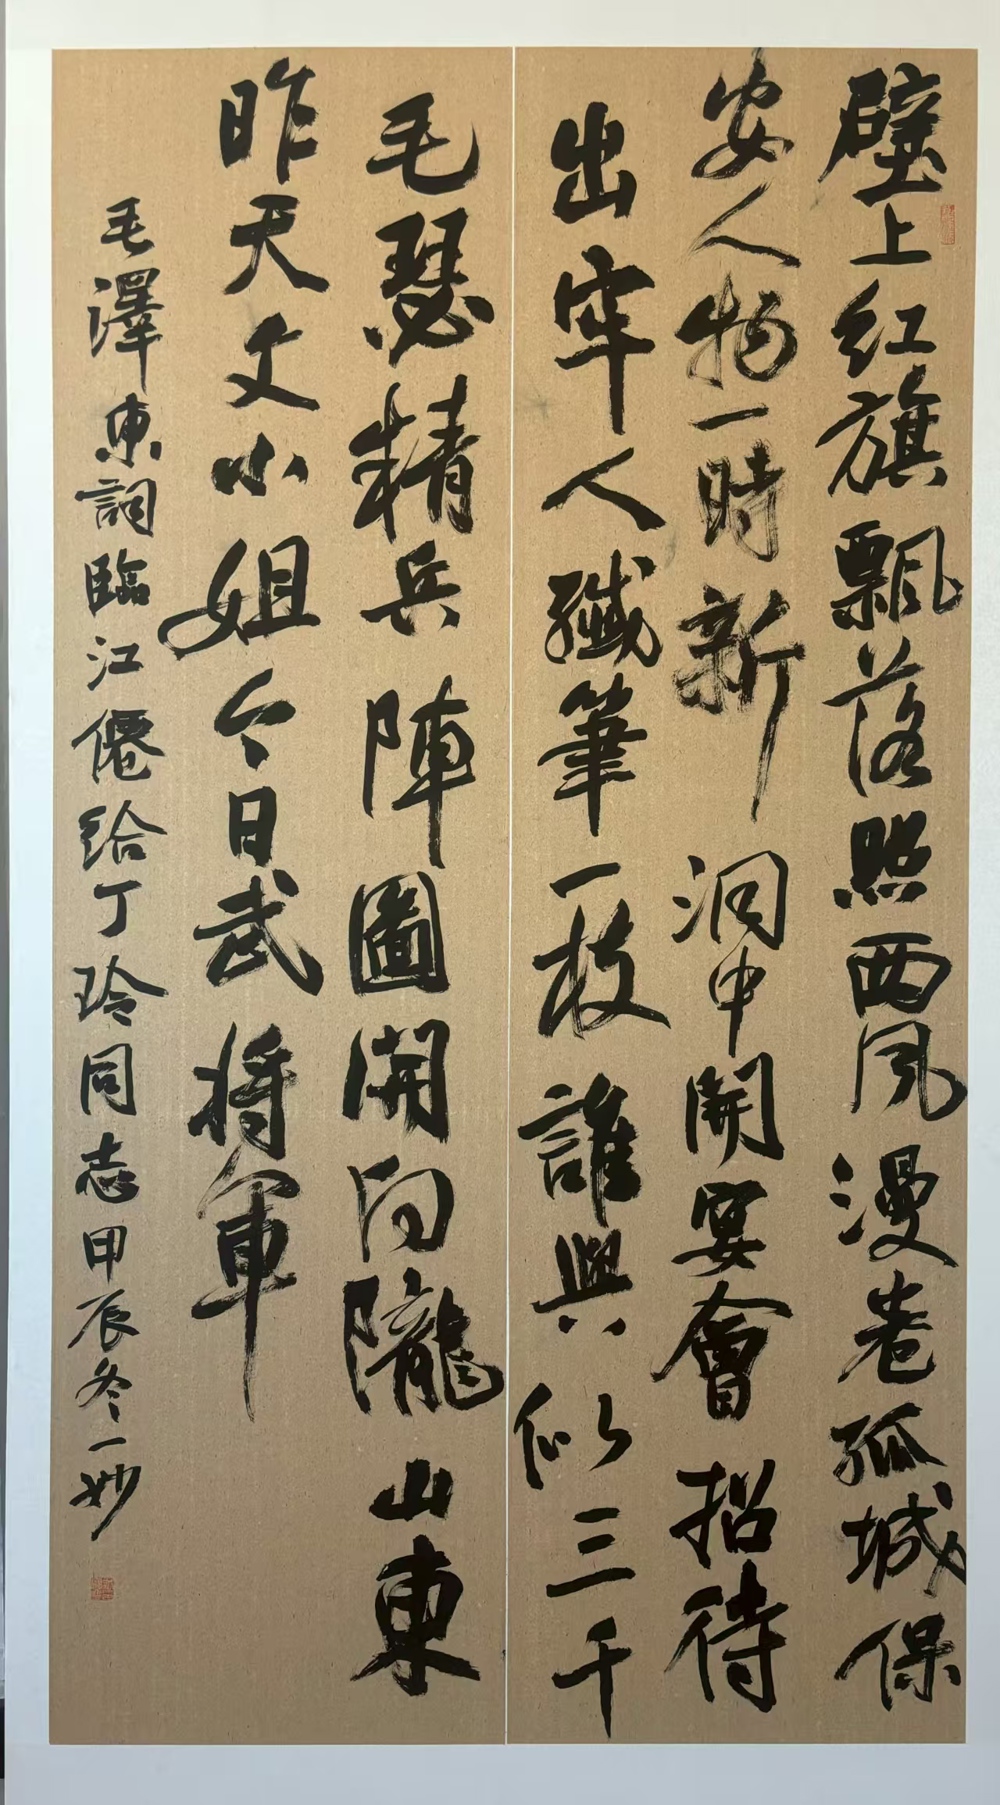 壁上红旗飄落照西風漫卷孤城保
安人物一時新洞中開宴會招待
出牢人殲筆一枝誰與似三千
毛瑟精兵陣圖開向隴山東
昨天文小姐今日武将軍
毛澤東詞臨江僊给丁玲同志甲辰冬一妙